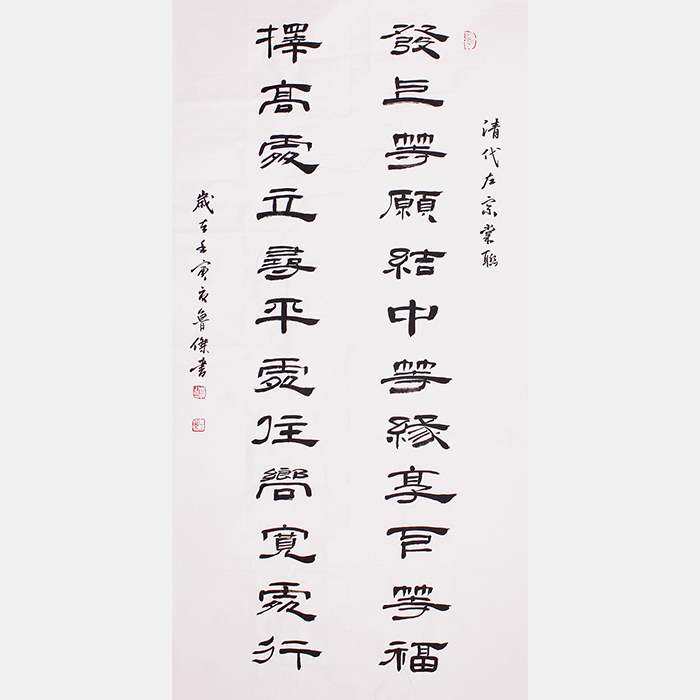 清代左宗棠聯
發上等願結中等緣享下等福
擇高處立尋平處住嚮寬處行
歲在壬寅夏魯傑書